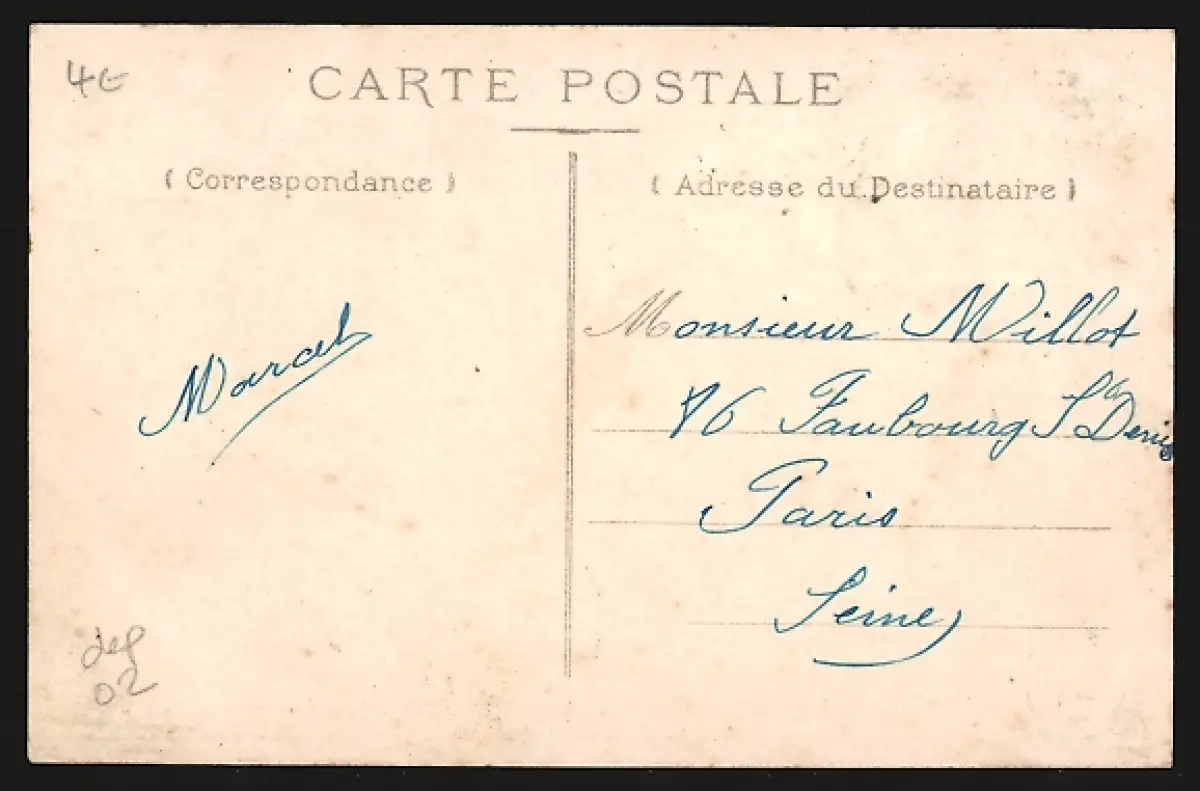 4€
CARTE POSTALE
( Correspondance )
( Adresse du Destinataire )
Marcel
Monsieur Willot
86 Faubourg St Denis
Paris
Seine
dep
02